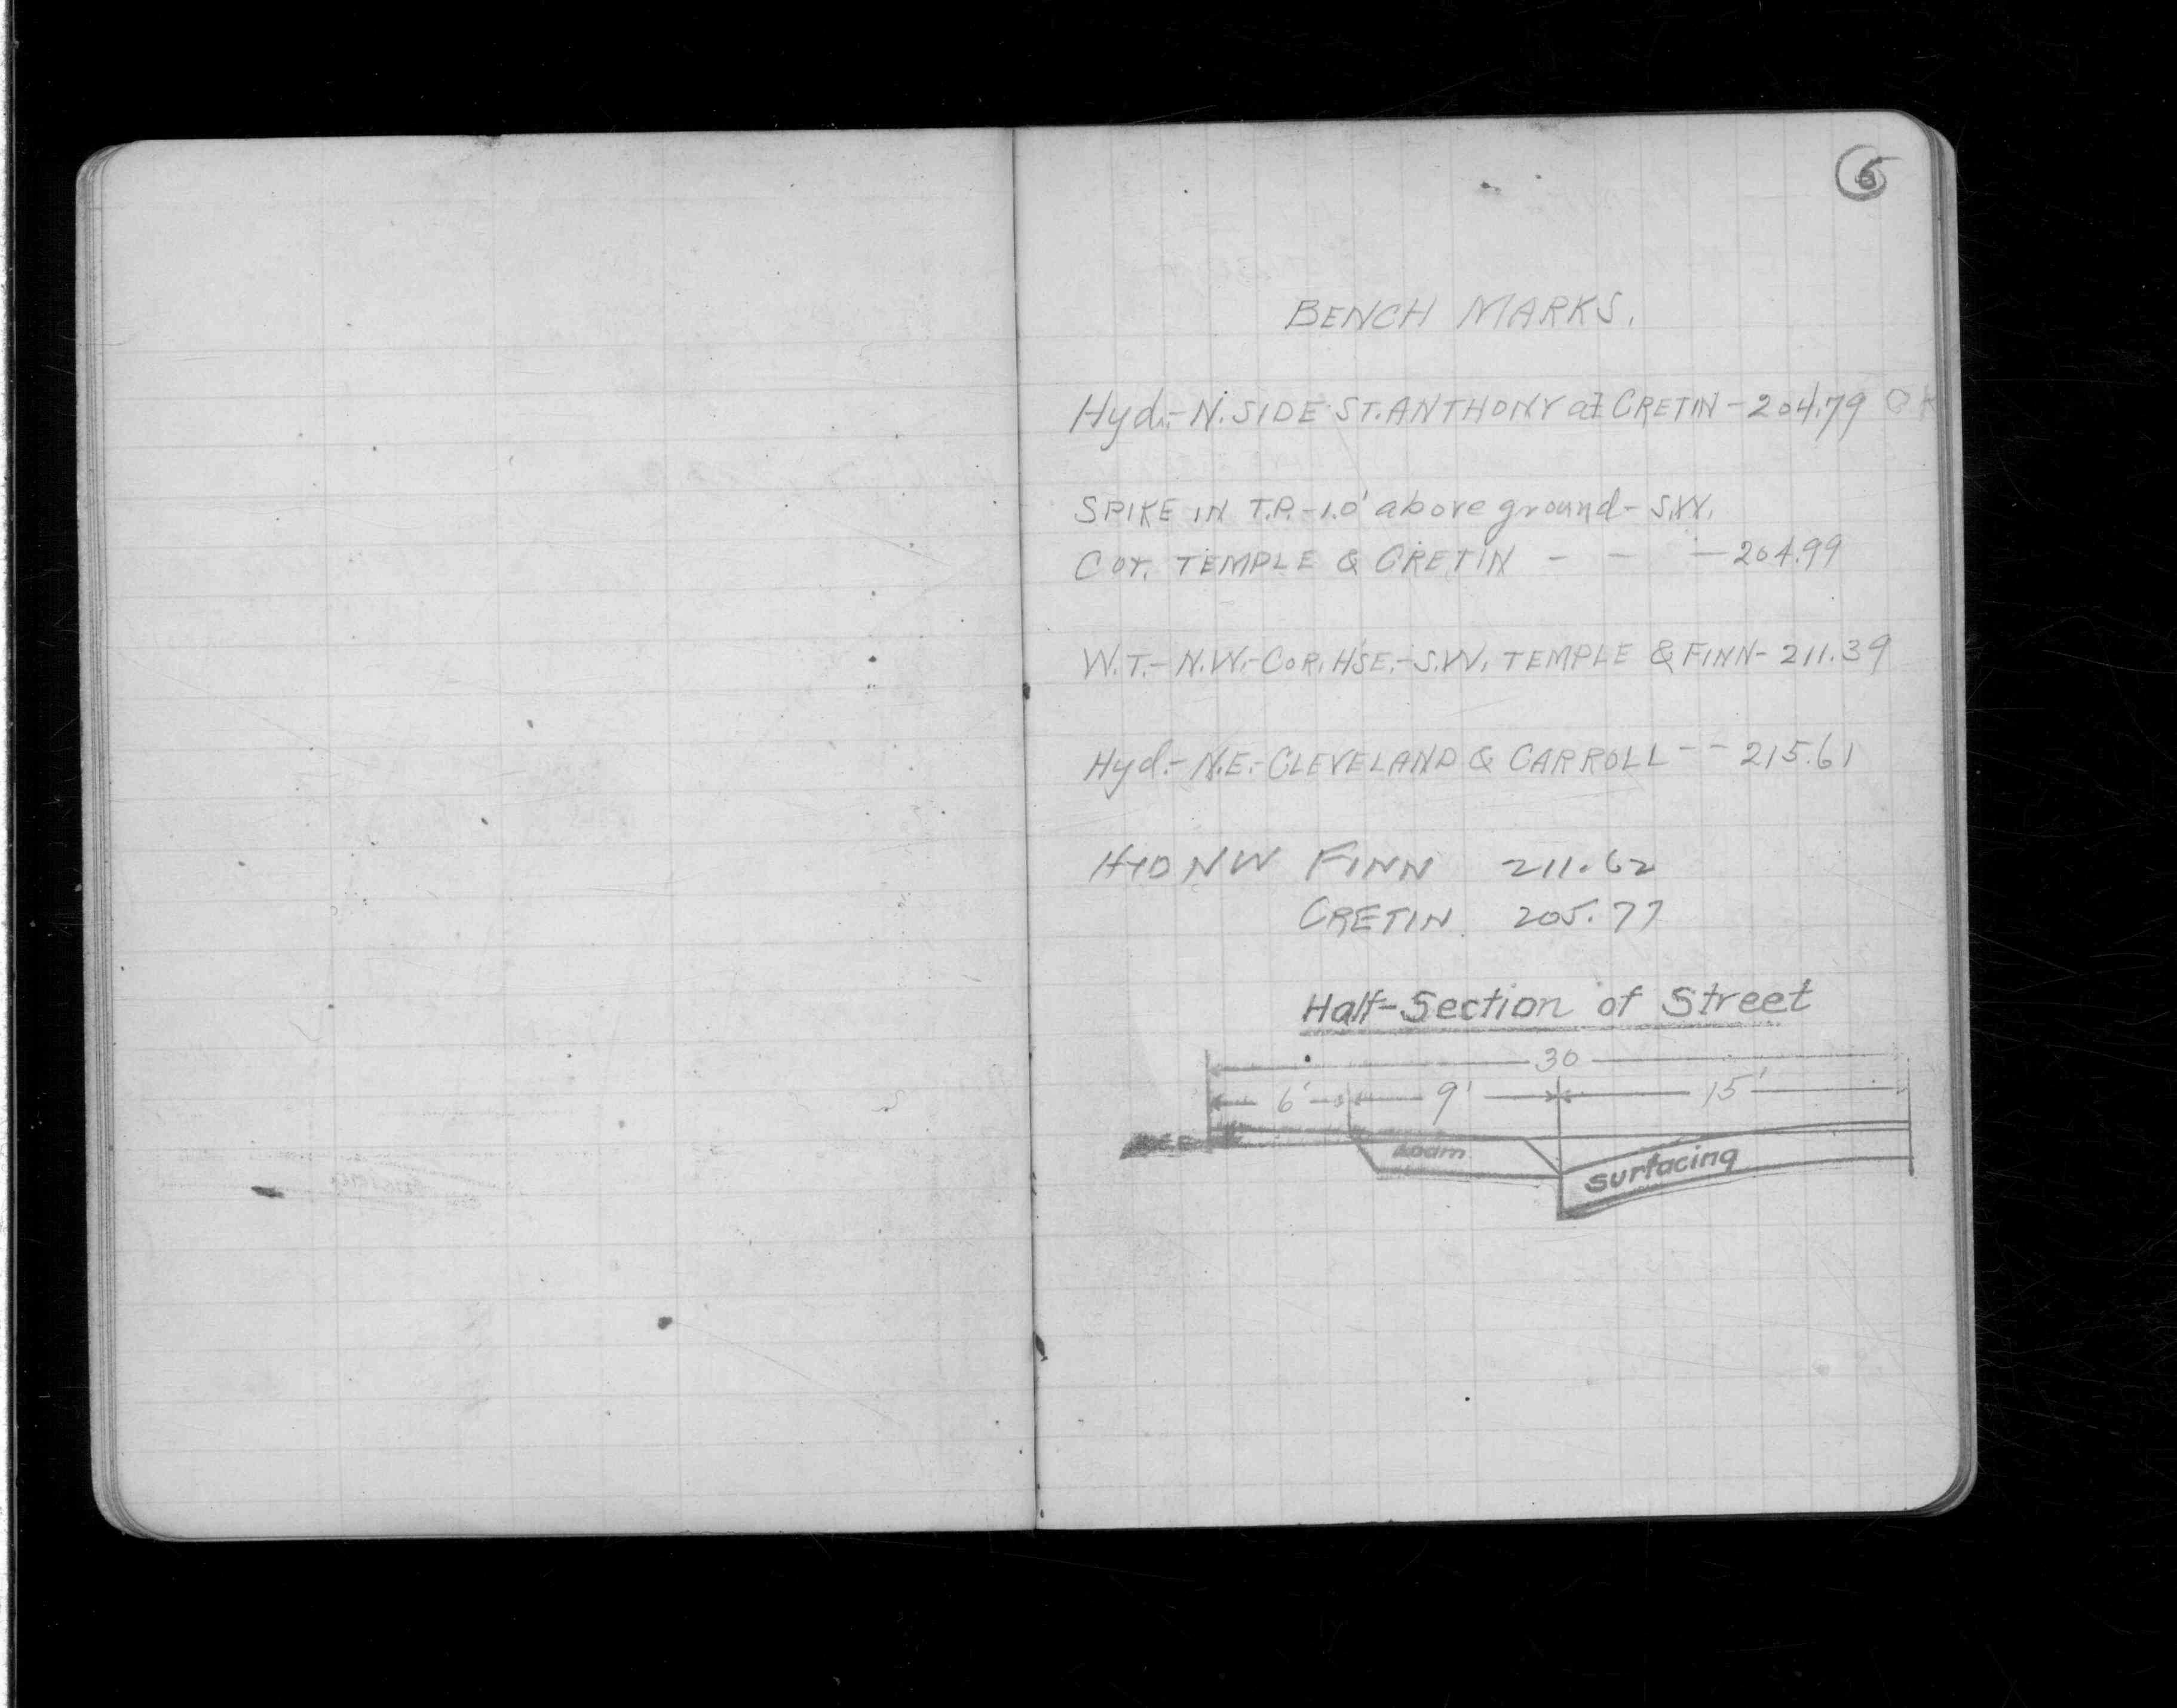 6
BENCH MARKS.
Hyd.- N. SIDE ST. ANTHONY at CRETIN - 204.79 OK
SPIKE IN T.P. - 1.0' above ground - S.W.
Cor. TEMPLE & CRETIN - - - 204.99
W.T. - N.W. - COR. HSE. - S.W. TEMPLE & FINN - 211.39
Hyd. - N.E. - CLEVELAND & CARROLL - - 215.61
HYD NW FINN 211.62
CRETIN 205.77
Half-Section of Street
30
6' 9' 15'
Loam
Surfacing